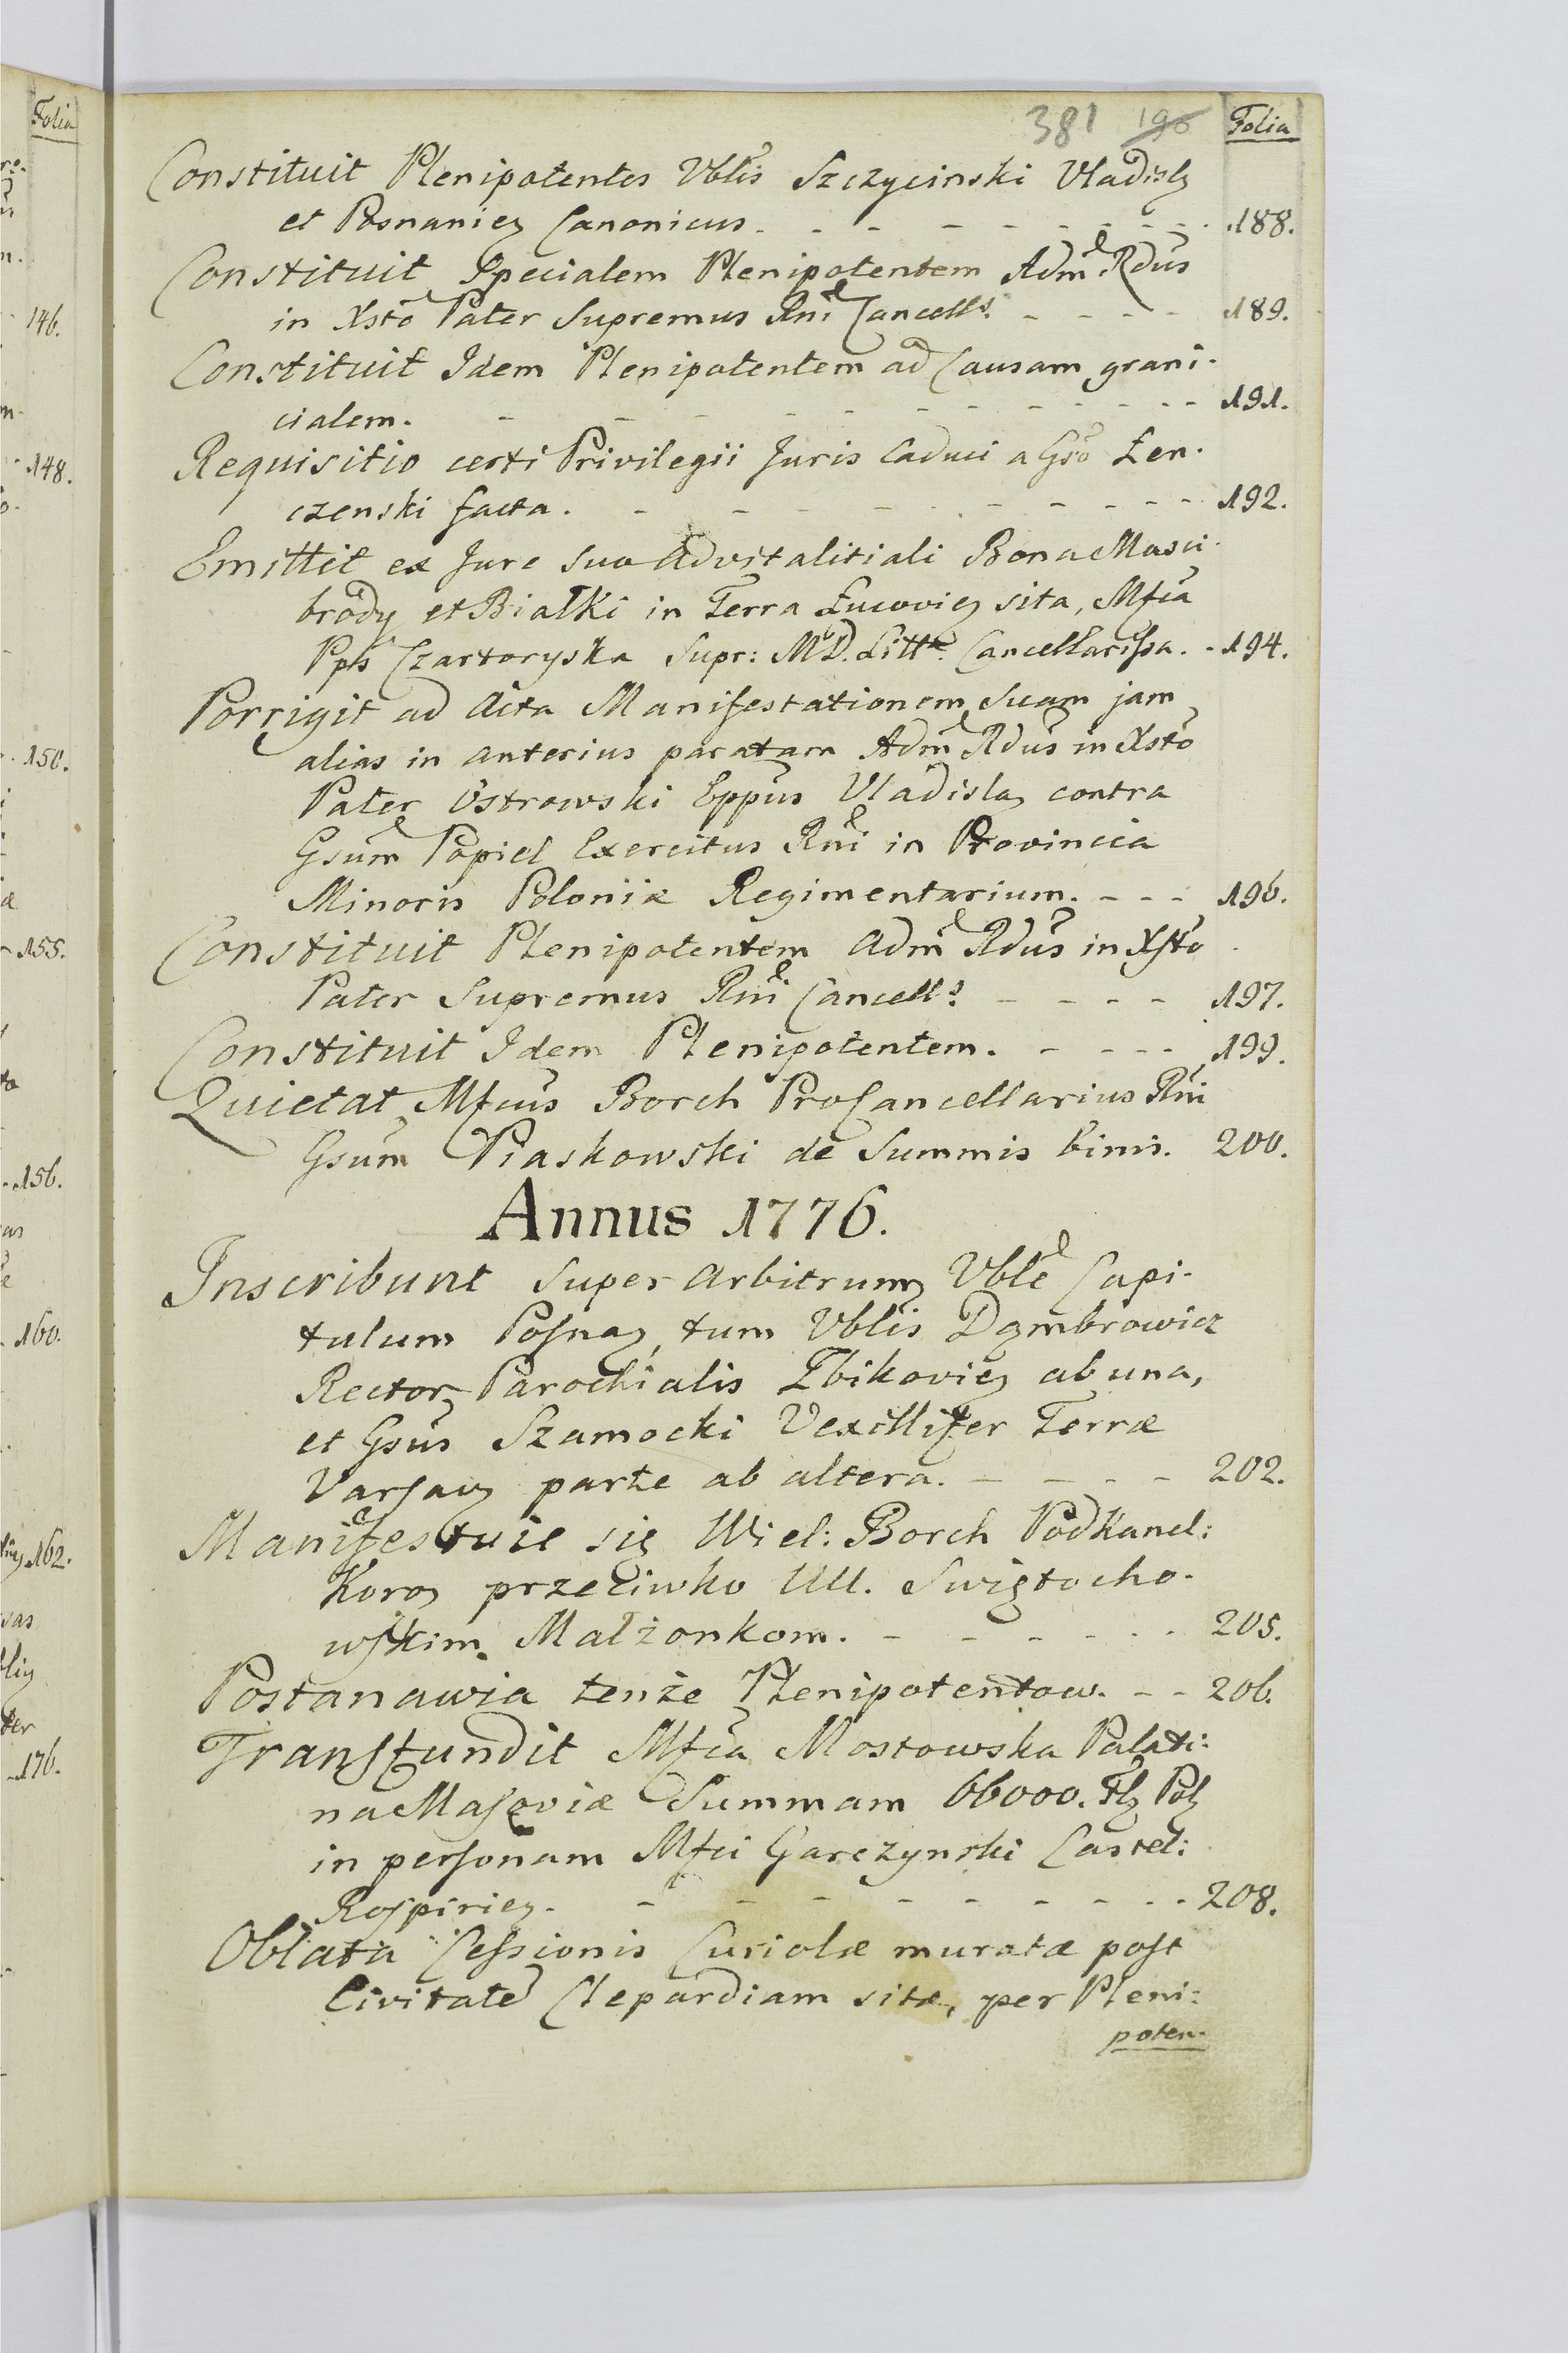 Folia
146.
148.
150.
155.
156.
160.
162.
176.
381 190 Folia
Constituit Plenipotentes Vblis Szczycinski Vladisl
et Posnanien Canonicus. 188.
Constituit Specialem Plenipotentem Adm Rdus
in Xsto Pater Supremus Rni Cancells. 189.
Constituit Idem Plenipotentem ad Causam grani-
cialem. 191.
Requisitio certi Privilegii Juris Caduci a Gso Łen-
czenski facta. 192.
Emittit ex Jure suo Advitalitiali Bona Masci-
brody et Białki in Terra Łucovien sita, Mfca
Pps Czartoryska Supr: M.D. Litt. Cancellarissa. 194.
Porrigit ad Acta Manifestationem Suam jam
alias in anterius paratam Adm Rdus in Xsto
Pater Ostrowski Eppus Vladislaz contra
Gsum Popiel Exercitus Rni in Provincia
Minoris Poloniæ Regimentarium. 196.
Constituit Plenipotentem Adm Rdus in Xsto
Pater Supremus Rni Cancells. 197.
Constituit Idem Plenipotentem. 199.
Quietat Mfcus Borch ProCancellarius Rni
Gsum Piaskowski de Summis binis. 200.
Annus 1776.
Inscribunt super Arbitrum Vble Capi-
tulum Posnaz, tum Vblis Dąmbrowicz
Rector Parochialis Zbikovien ab una,
et Gsus Szamocki Vexillifer Terræ
Varsav parte ab altera. 202.
Manifestuie się Wiel: Borch Podkancl:
Koroz przeciwko UU. Swiętocho-
wskim Małżonkom. 205.
Postanawia tenże Plenipotentow. 206.
Transfundit Mfca Mostowska Palati:
na Masoviæ Summam 66000. Fl Pol
in personam Mfci Garczynski Castel:
Rospirien. 208.
Oblata Cessionis Curiolæ muratæ post
Civitate Clepardiam sitæ, per Pleni:
poten-